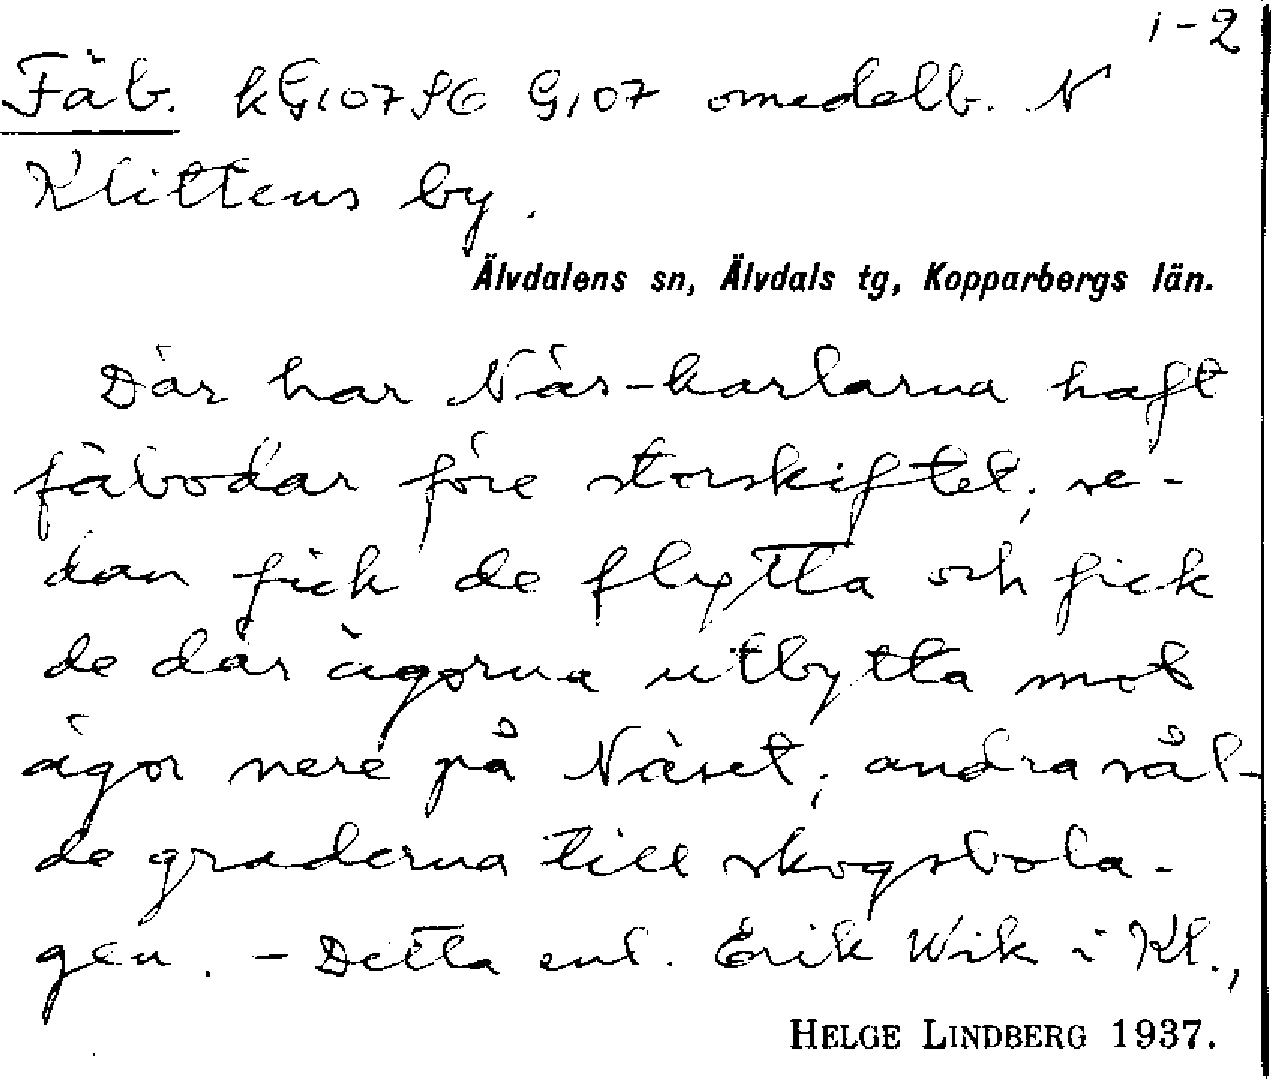 1-2
Fäb. kG107 omedelb. N
Klittens by.
Älvdalens sn, Älvdals tg, Kopparbergs län.
Där har Näs-karlarna haft
fäbodar före storskiftet; se-
dan fick de flytta och fick
de där ägorna utbytta mot
ägor nere på Näset; andra sål-
de graderna till skogsbola-
gen. - Detta enl. Erik Wik i Kl.,
HELGE LINDBERG 1937.